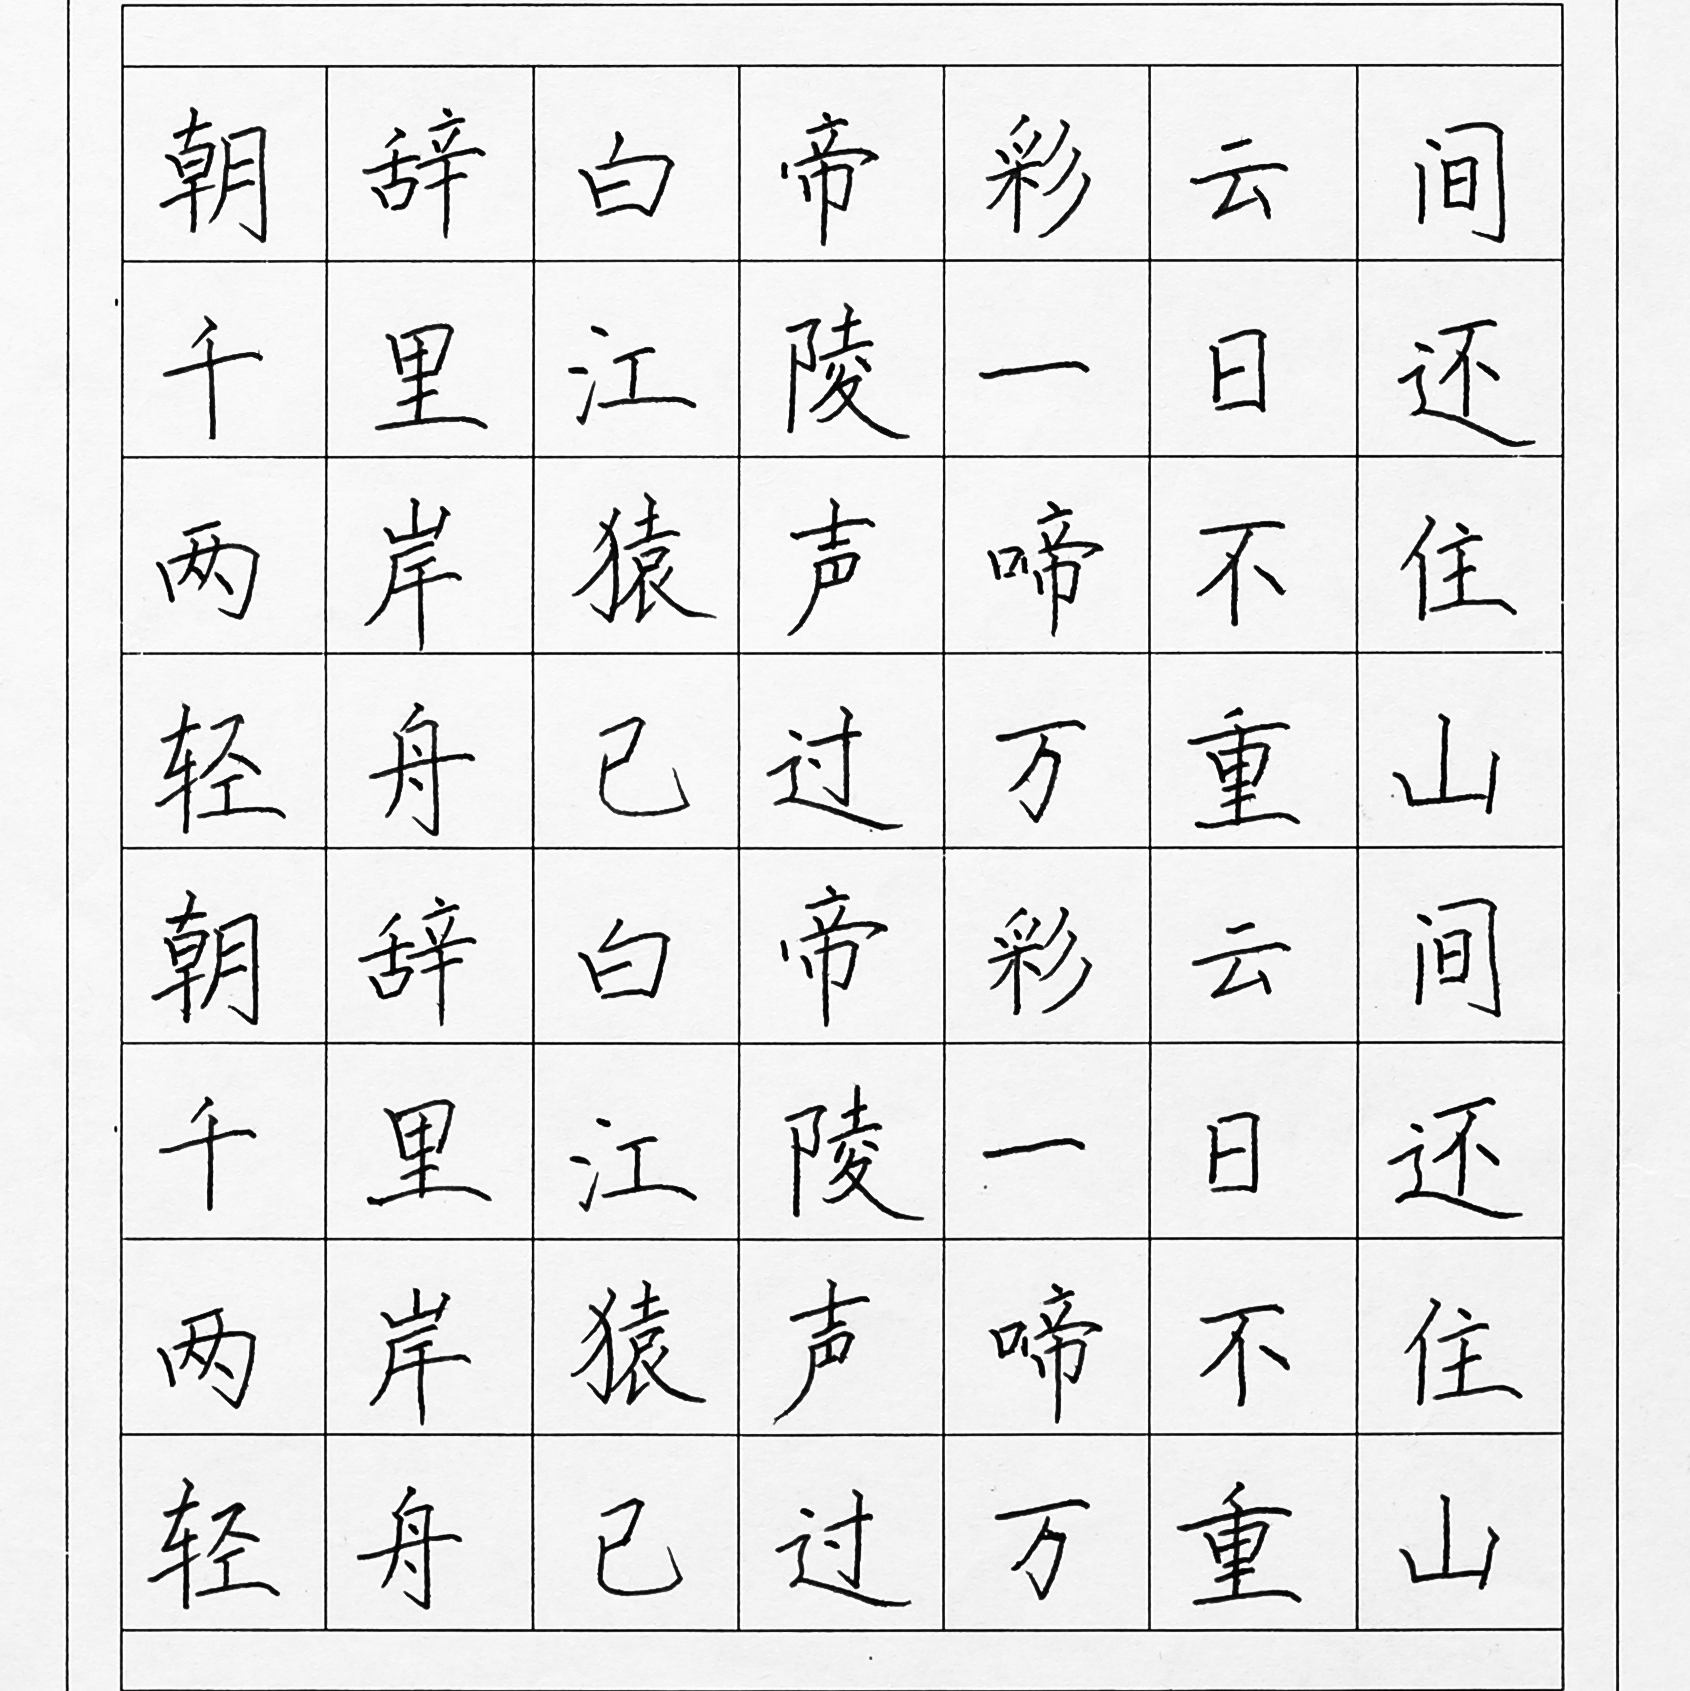 朝辞白帝彩云间
千里江陵一日还
两岸猿声啼不住
轻舟已过万重山
朝辞白帝彩云间
千里江陵一日还
两岸猿声啼不住
轻舟已过万重山